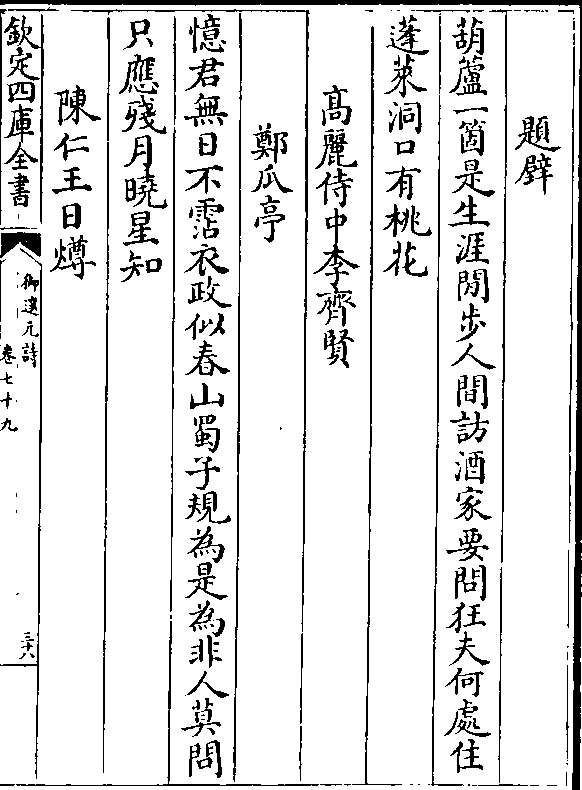 題壁
葫蘆一箇是生涯閒步人間訪酒家要問狂夫何處住
蓬萊洞口有桃花
高麗侍中李齊賢
鄭瓜亭
憶君無日不霑衣政似春山蜀子規為是為非人莫問
只應殘月曉星知
陳仁王日燇
欽定四庫全書
御選元詩
卷七十九
三十八